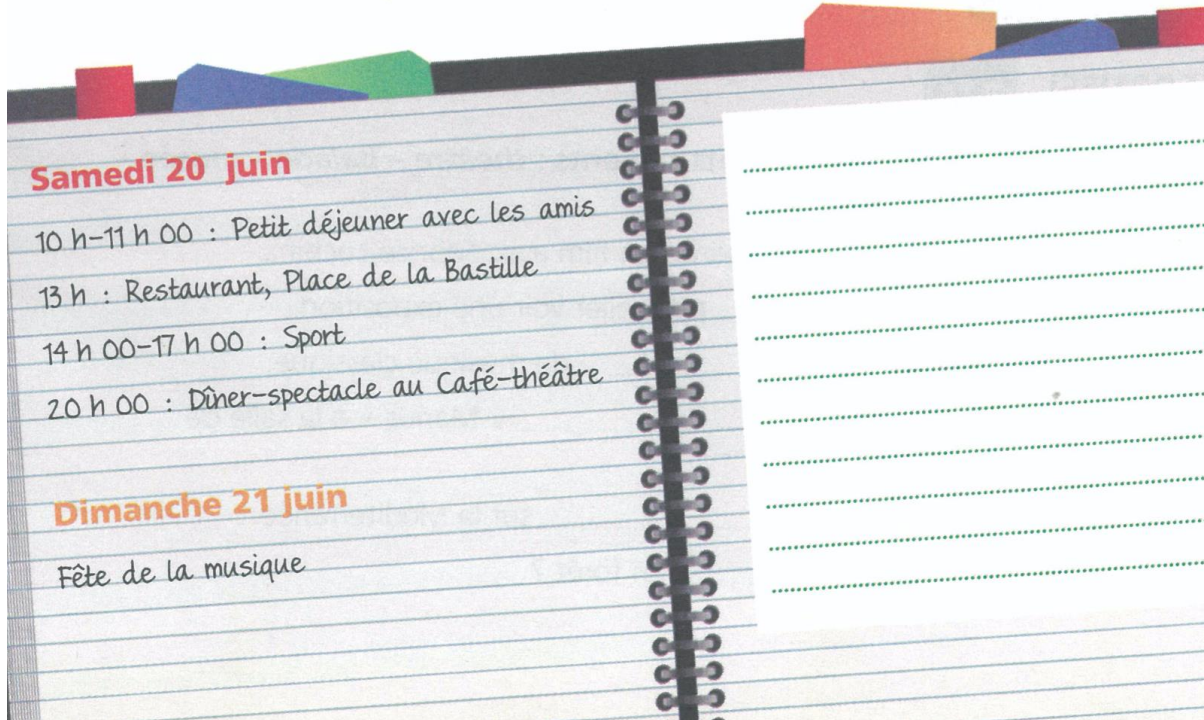 Samedi 20 juin
10 h-11 h 00 : Petit déjeuner avec les amis
13 h : Restaurant, Place de la Bastille
14 h 00-17 h 00 : Sport
20 h 00 : Dîner-spectacle au Café-théâtre
Dimanche 21 juin
Fête de la musique